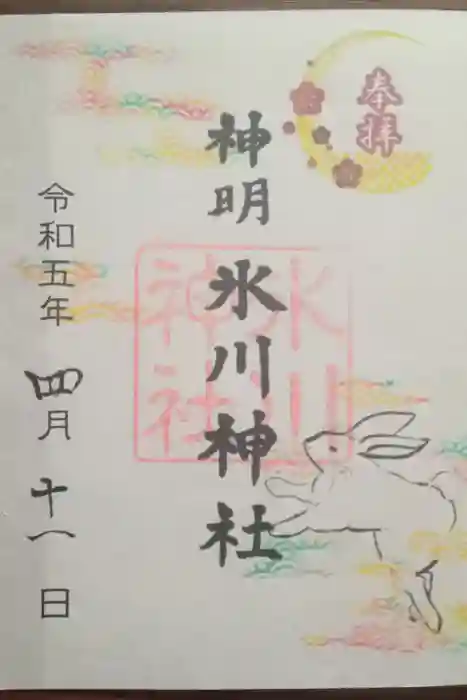 奉拝
神明 氷川神社
氷川神社
令和五年 四月 十一日